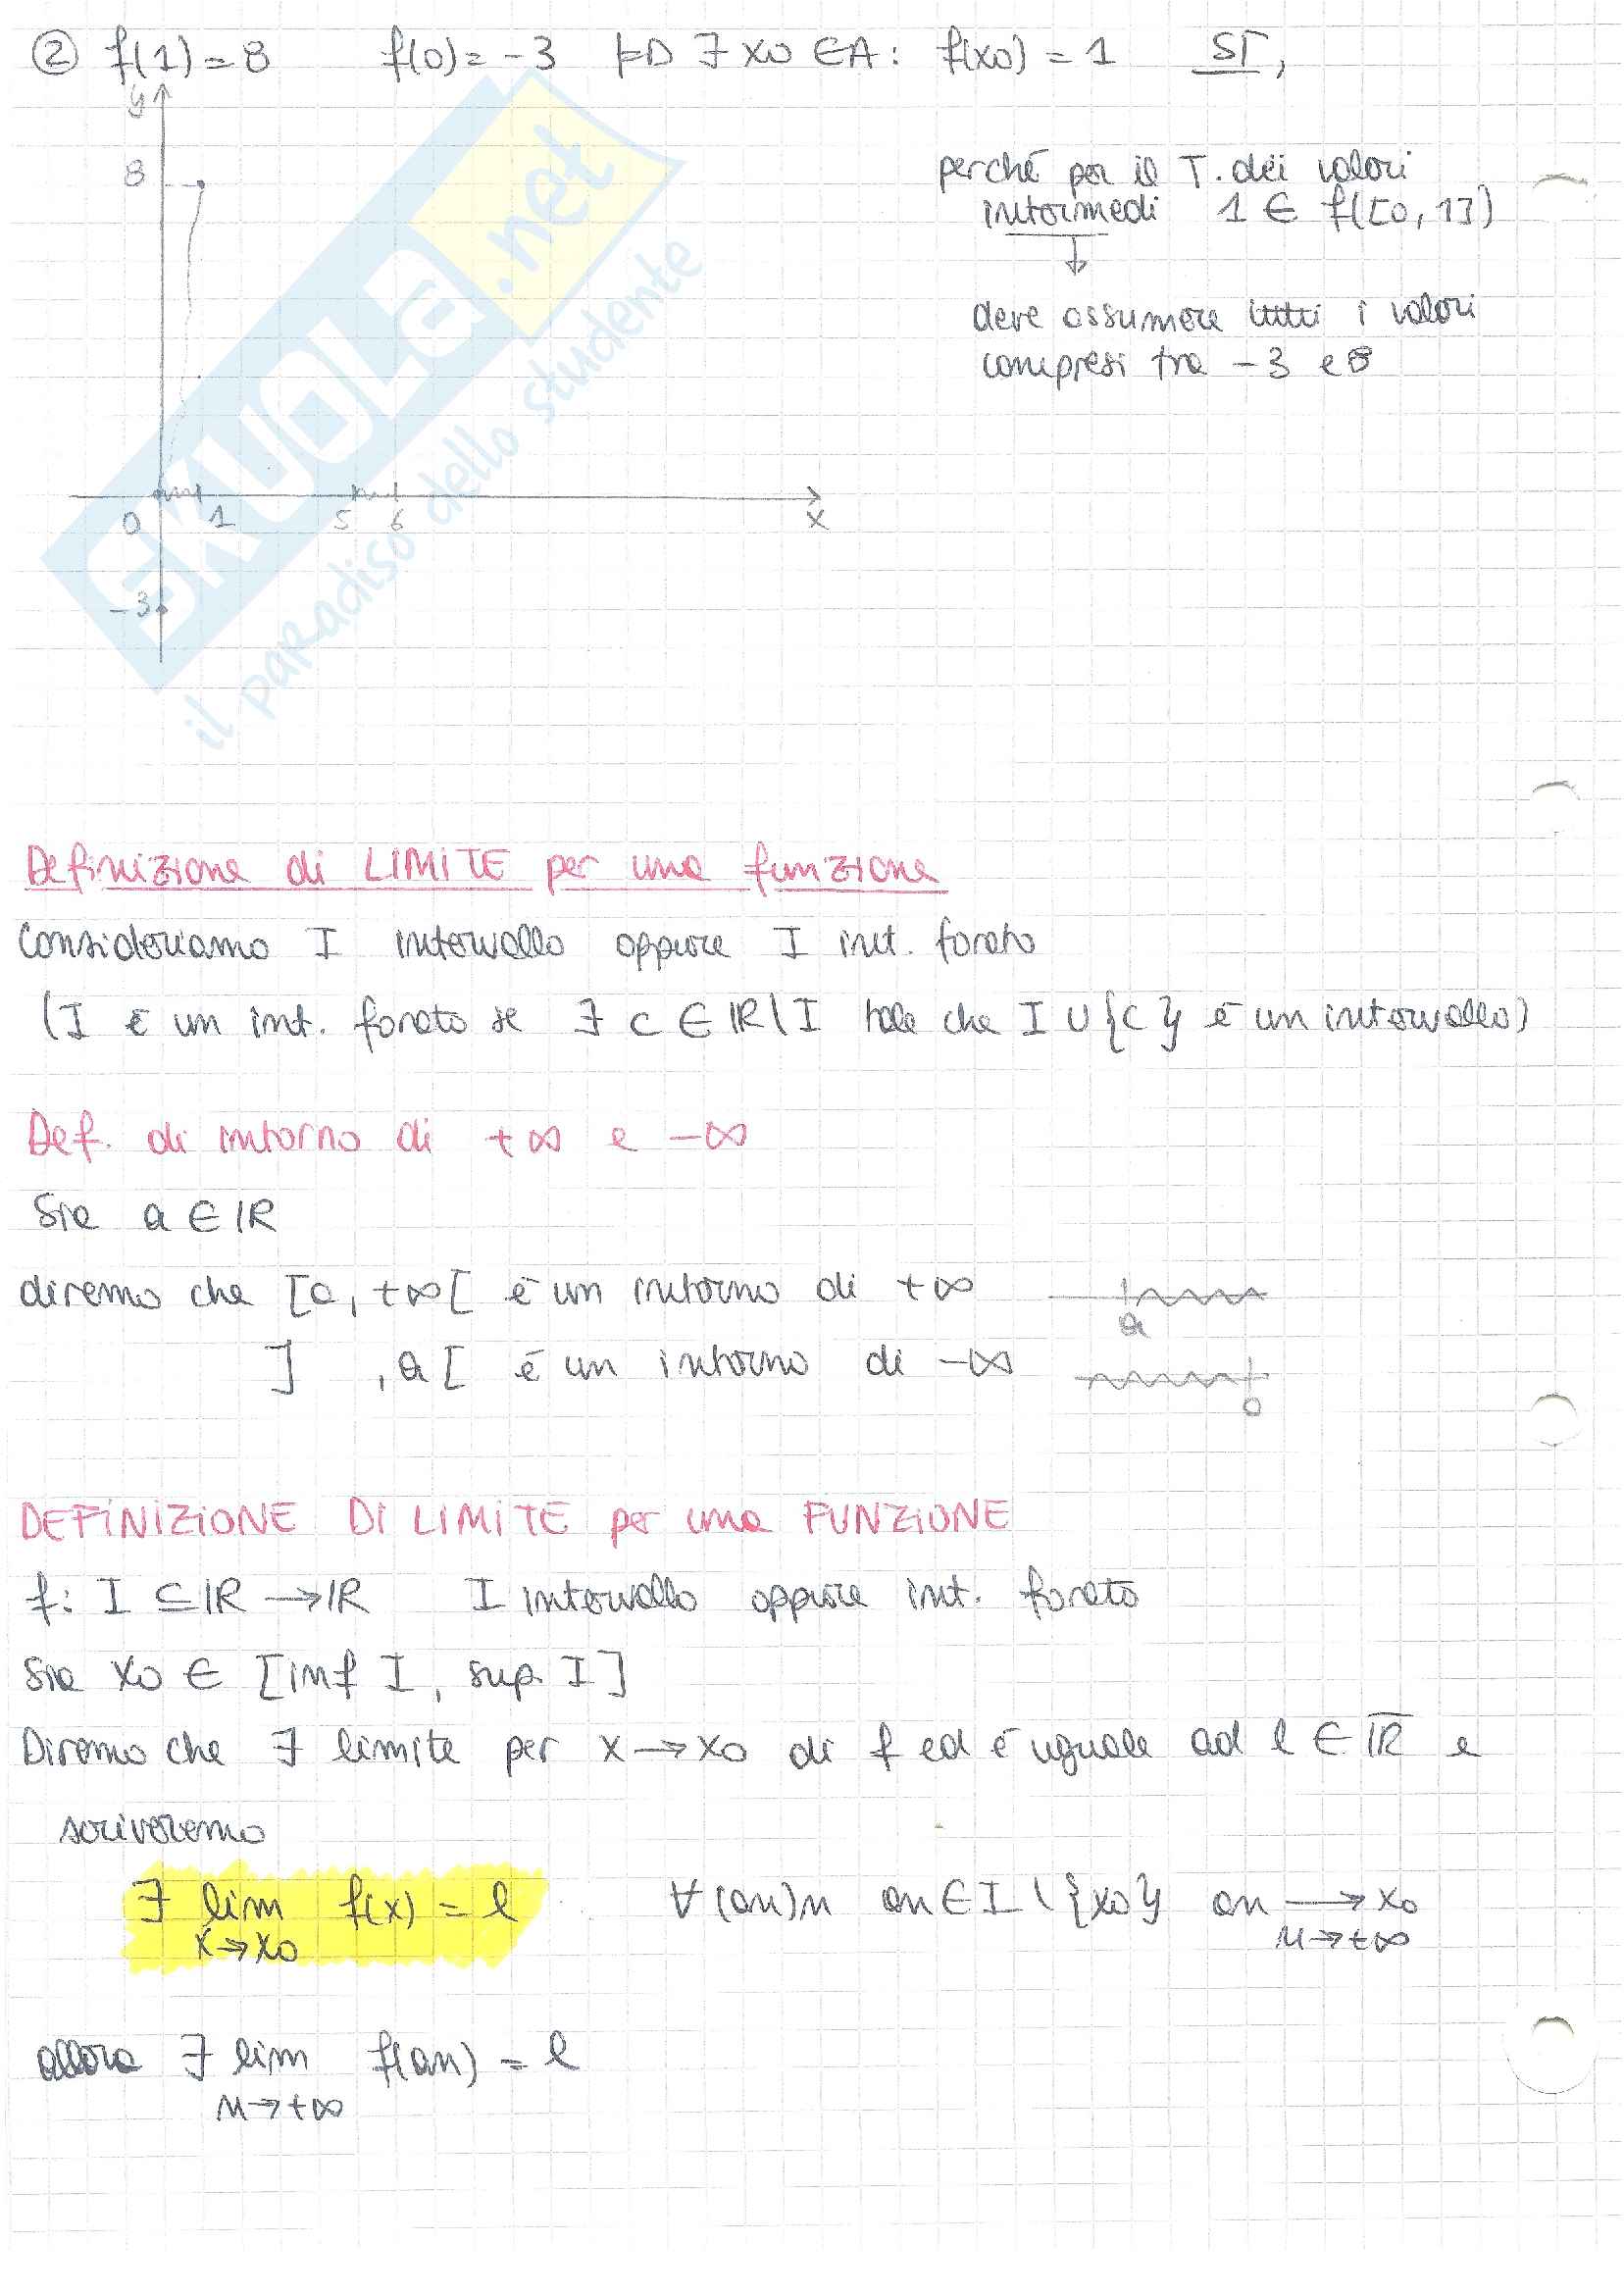 ② f(1) = 8 f(0) = -3 ⊨D ∃ x0 ∈ A : f(x0) = 1 SI,
y
8
perché per il T. dei valori
intermedi 1 ∈ f([0, 1])
↓
deve assumere tutti i valori
compresi tra -3 e 8
0 1 5 6 x
-3
SKUOLA.net
il paradiso dello studente
Definizione di LIMITE per una funzione
Consideriamo I intervallo oppure I int. forato
(I è un int. forato se ∃ c ∈ ℝ \ I tale che I ∪ {c} è un intervallo)
Def. di intorno di +∞ e -∞
Sia a ∈ ℝ
diremo che [a, +∞[ è un intorno di +∞
a
] , a[ è un intorno di -∞
a
DEFINIZIONE DI LIMITE per una FUNZIONE
f: I ⊆ ℝ → ℝ I intervallo oppure int. forato
Sia x0 ∈ [inf I, sup I]
Diremo che ∃ limite per x → x0 di f ed è uguale ad l ∈ ℝ̅ e
scriveremo
∃ lim f(x) = l ∀ (an)n an ∈ I \ {x0} an → x0
x → x0 n → +∞
allora ∃ lim f(an) = l
n → +∞